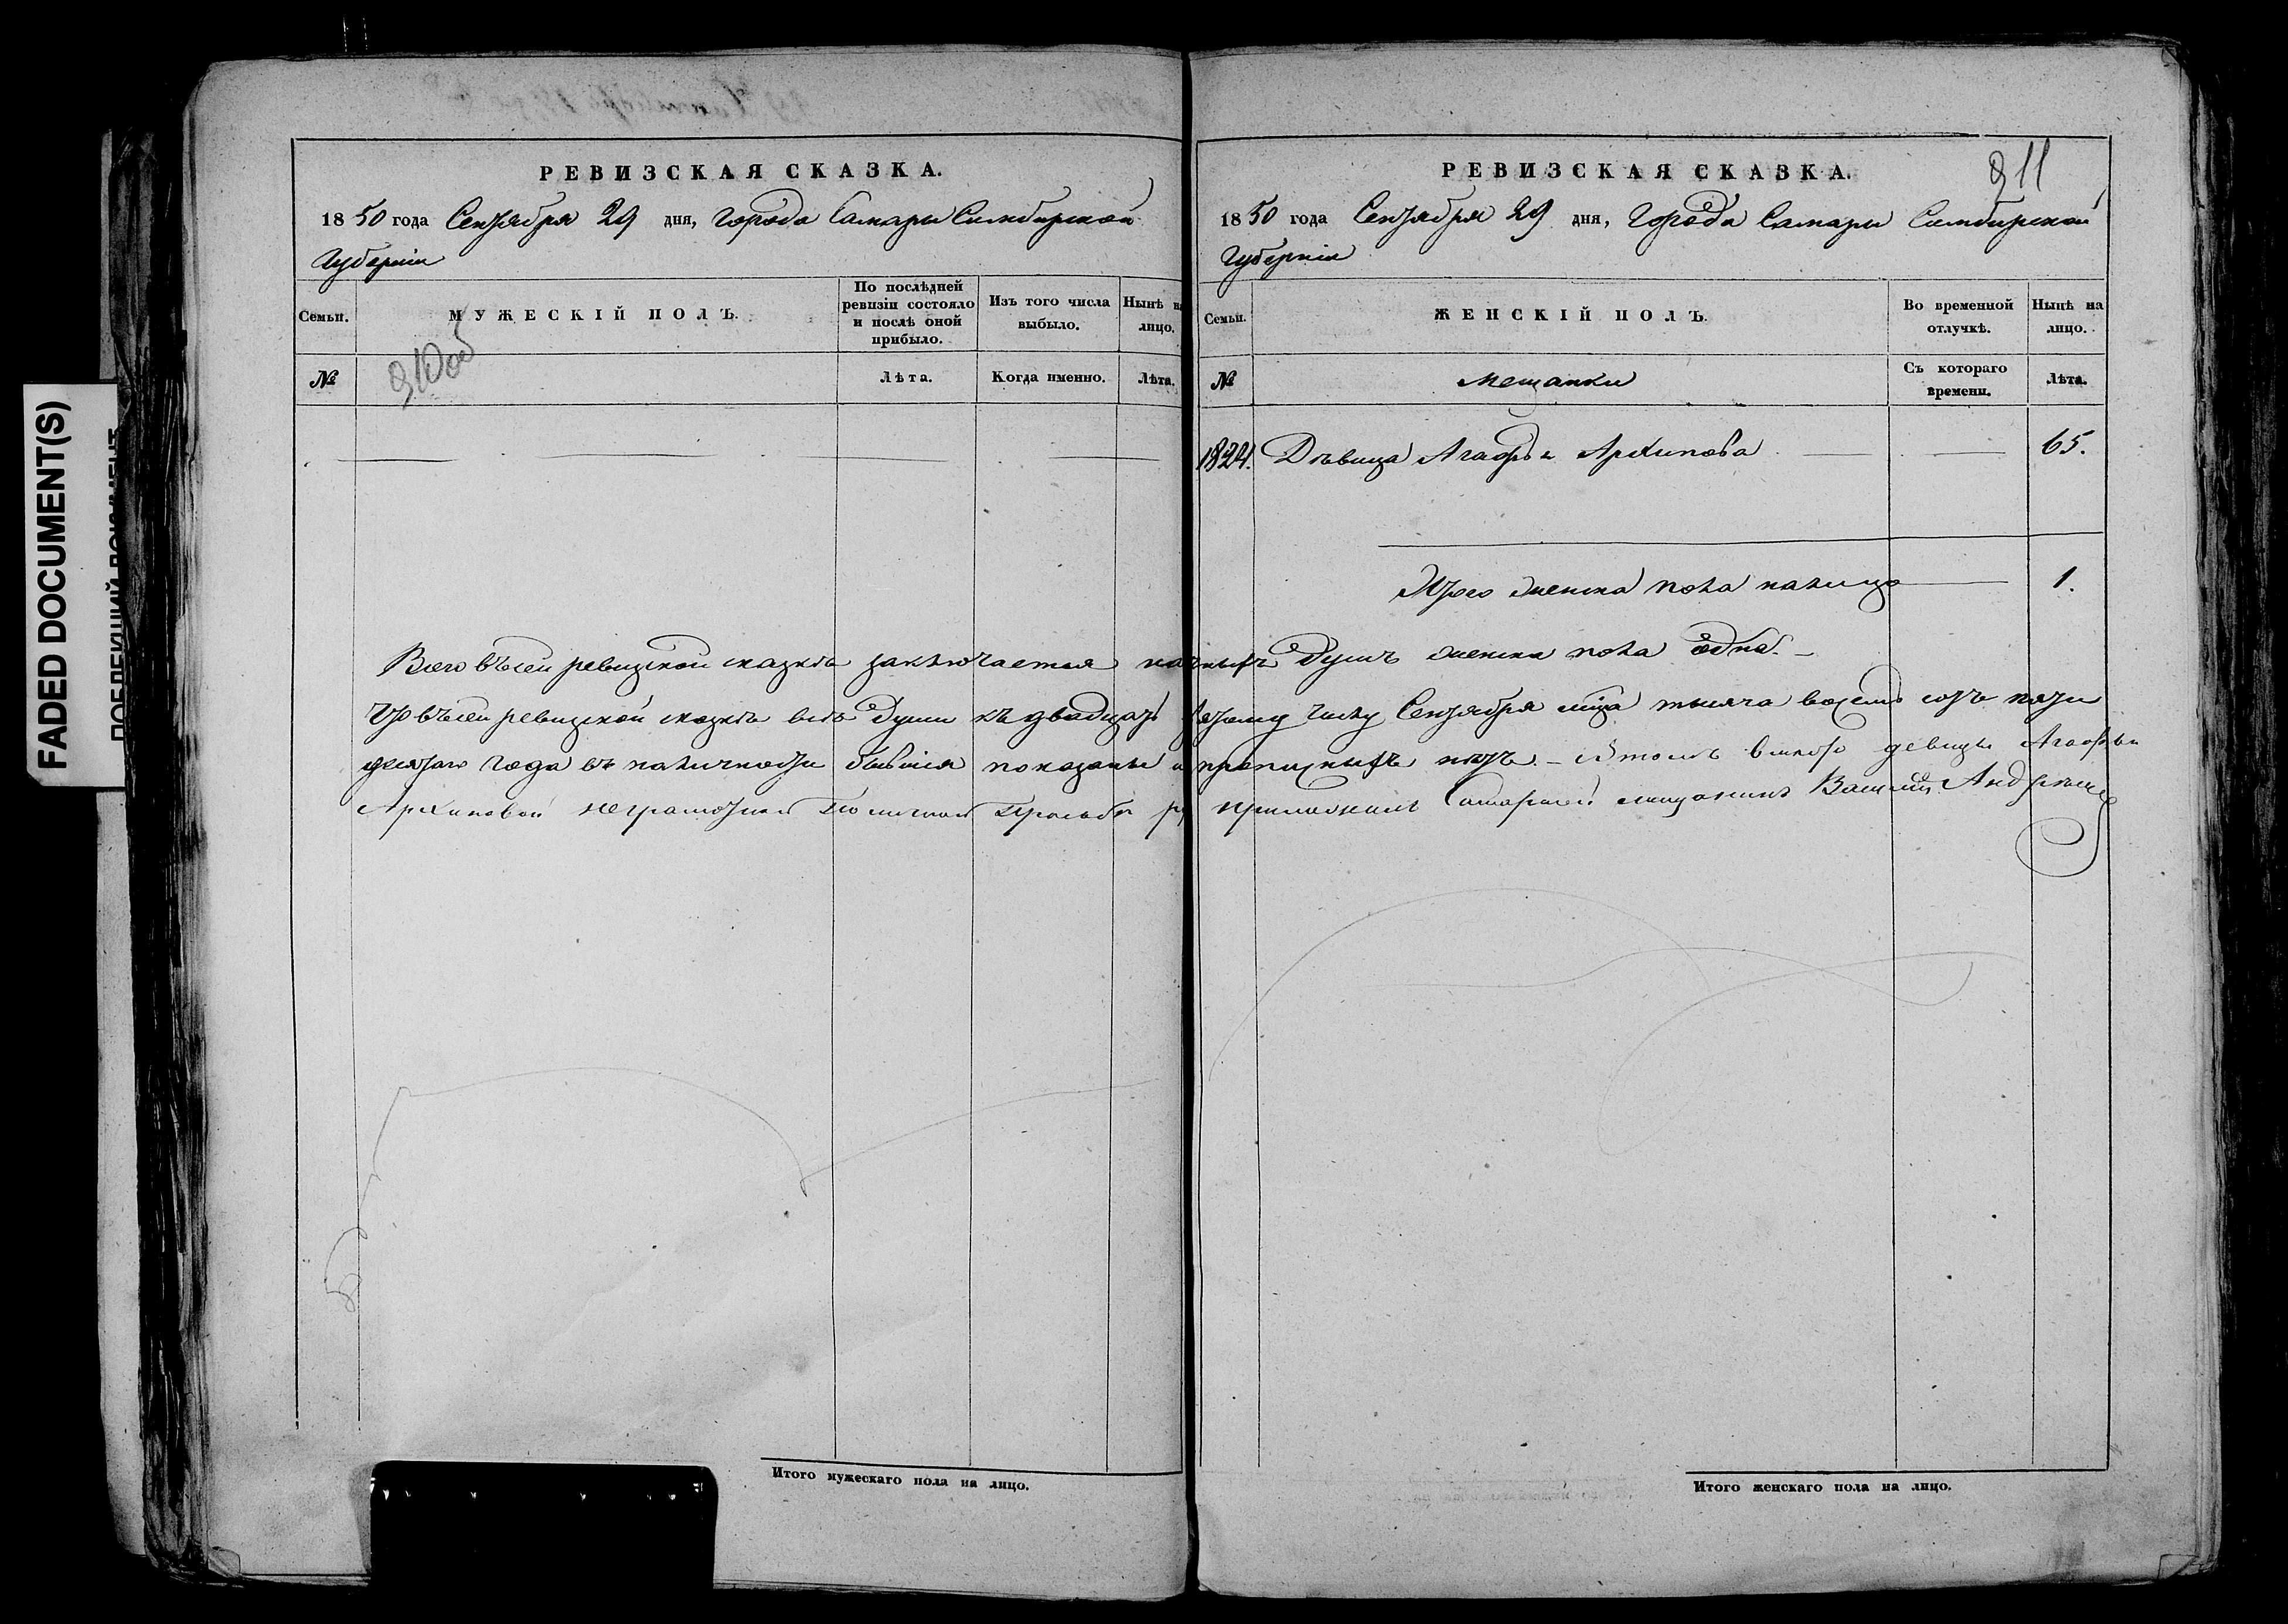 FADED DOCUMENT(S)
РЕВИЗСКАЯ СКАЗКА.
1850 года Сентября 29 дня, Города Самары Симбирской
Губернiи
Семьи.
МУЖЕСКIЙ ПОЛЪ.
По послѣдней
ревизiи состояло
и послѣ оной
прибыло.
Изъ того числа
выбыло.
Нынѣ на
лицо.
№
910об
Лѣта.
Когда именно.
Лѣта.
911
РЕВИЗСКАЯ СКАЗКА.
1850 года Сентября 29 дня, Города Самары Симбирской
Губернiи
Семьи.
ЖЕНСКIЙ ПОЛЪ.
Во временной
отлучкѣ.
Нынѣ на
лицо.
№
Мещанки
Съ котораго
времени.
Лѣта.
1824. Дѣвица Агафья Архипова 65.
Итого женска пола налицо 1.
Всего въ сей ревизской сказкѣ заключается наличныхъ душъ женска пола одна.
Что въ сей ревизской сказкѣ всѣ души къ двадцать числу Сентября мца тысяча восемь сотъ пяти
десятаго года въ наличности бывшiя показаны и прописныхъ нѣтъ. – Въ томъ вместо девицы Агафьи
Архиповой неграмотной по личной просьбе приложилъ Самарской мещанинъ Василий Андреевъ
Итого мужескаго пола на лицо.
Итого женскаго пола на лицо.